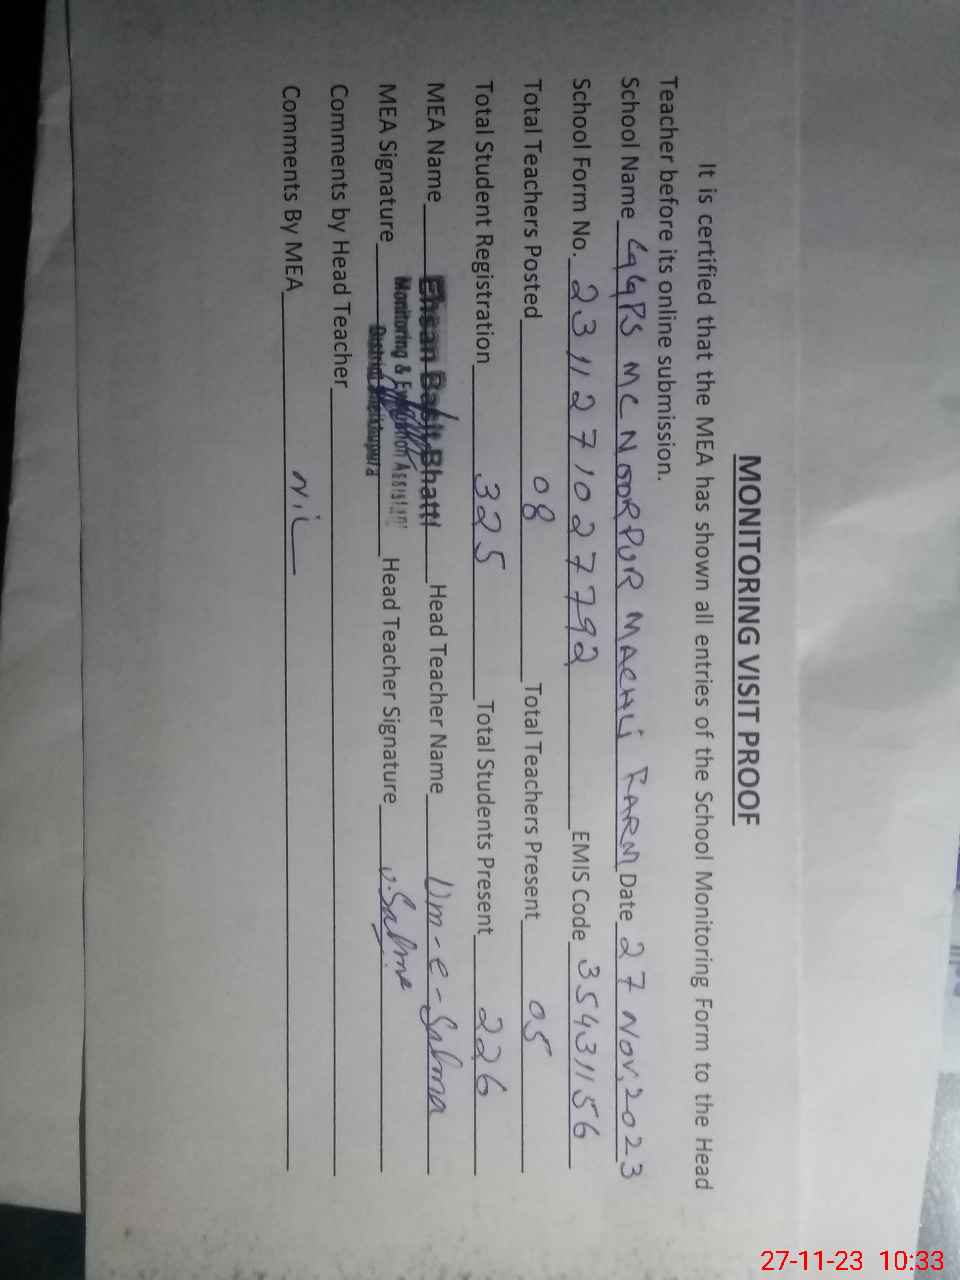 MONITORING VISIT PROOF
It is certified that the MEA has shown all entries of the School Monitoring Form to the Head
Teacher before its online submission.
School Name GGPS MC NOORPUR MACHLI FARM Date 27 Nov. 2023
School Form No. 2311271027792 EMIS Code 35431156
Total Teachers Posted 08 Total Teachers Present 05
Total Student Registration 325 Total Students Present 226
MEA Name Ehsan Bhatti Head Teacher Name Um-e-Salma
Monitoring & Evaluation Assistant
MEA Signature Head Teacher Signature U.Salma
District Sheikhupura
Comments by Head Teacher
Comments By MEA NiL
27-11-23 10:33